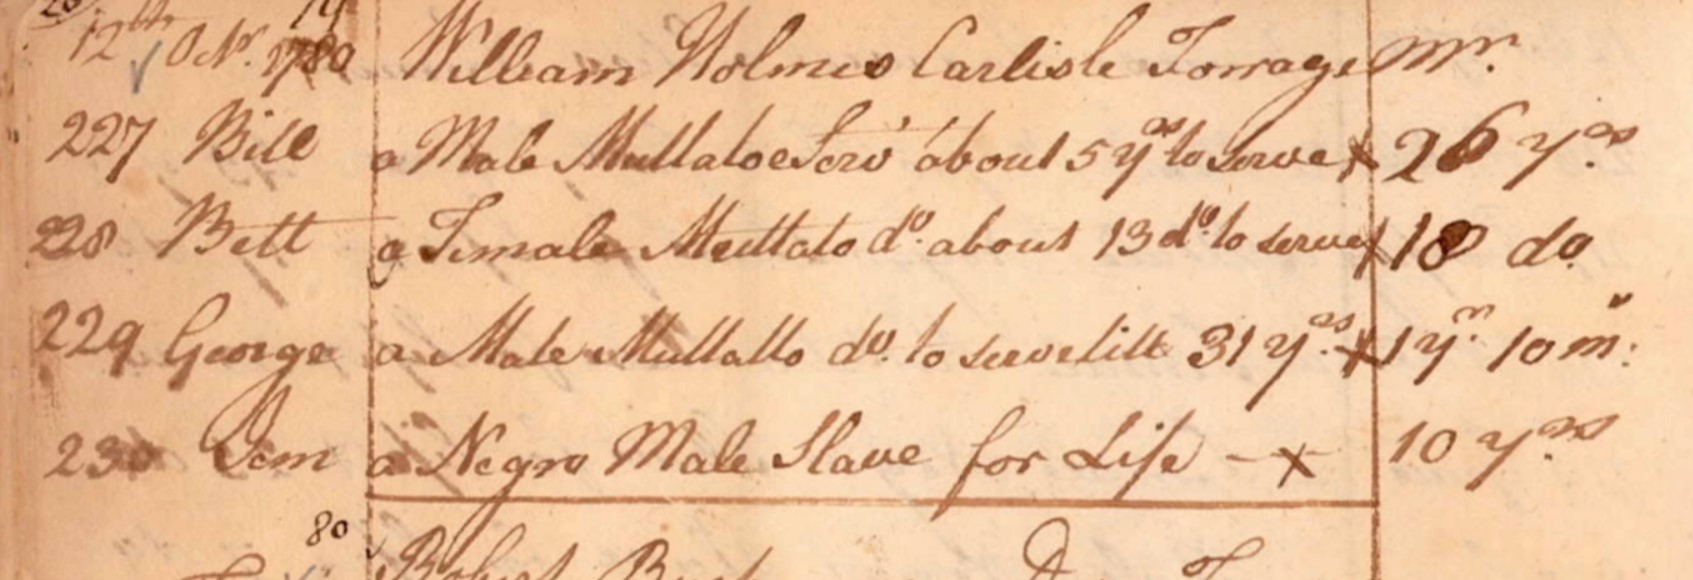 12th Octr. 1780 William Holmes Carlisle Forrage Mr.
227 Bill a Male Mullatoe Serv' about 5 yrs to serve x 26 yrs
228 Bett a Female Mullato do. about 13 do. to serve x 18 do
229 George a Male Mullatto do. to serve till 31 yrs. x 1 yr 10 m:
230 Jem a Negro Male Slave for Life - x 10 yrs
80 Robert